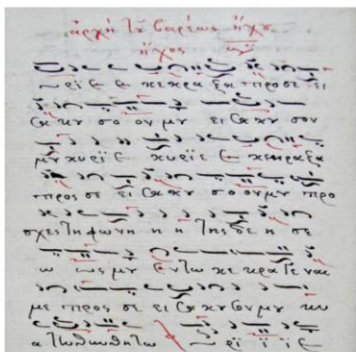 ἀρχὴ τοῦ βαρέως ἤχου
ἦχος
ρϊε ε κεκρα ξα προσε ει
σα κου σο ον μου ει σα κου σον
μου κυρϊε κυρϊε ε κεκραξα
προς σε εισακου σο ον μου προ
σχες τη φωνη η η της δε η σε
ω ως μου εν τω κε κραγεναι
με προς σε εισακουσον μου κυ